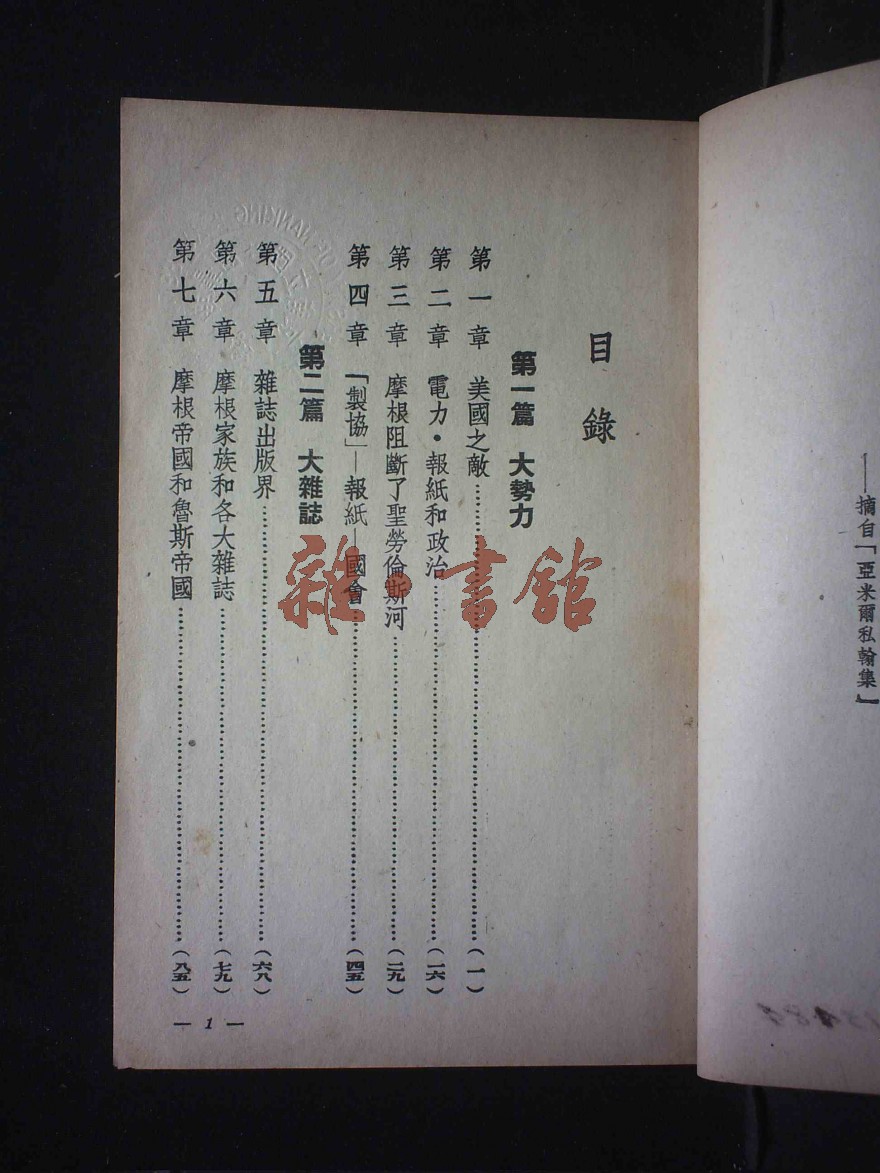 ——摘自「亞米爾私翰集」
目錄
第一篇 大勢力
第一章 美國之敵……(一)
第二章 電力・報紙和政治……(一六)
第三章 摩根阻斷了聖勞倫斯河……(二九)
第四章 「製協」—報紙—國會……(四五)
第二篇 大雜誌
第五章 雜誌出版界……(六八)
第六章 摩根家族和各大雜誌……(七九)
第七章 摩根帝國和魯斯帝國……(八五)
— 1 —
雜·書館